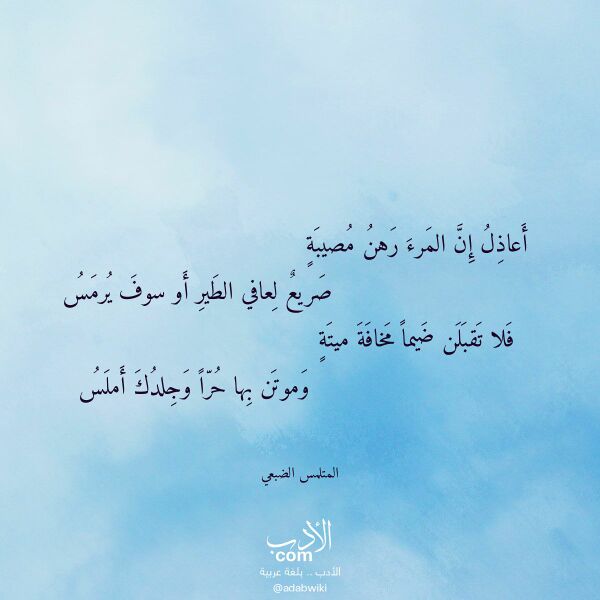 أَعاذِلُ إِنَّ المَرءَ رَهنُ مُصيبَةٍ
صَريعٌ لِعافي الطَيرِ أَو سوفَ يُرمَسُ
فَلا تَقبَلَن ضَيماً مَخافَةَ ميتَةٍ
وَموتَن بِها حُرّاً وَجِلدُكَ أَملَسُ
المتلمس الضبعي
الأدب
com
الأدب .. بلغة عربية
@adabwiki